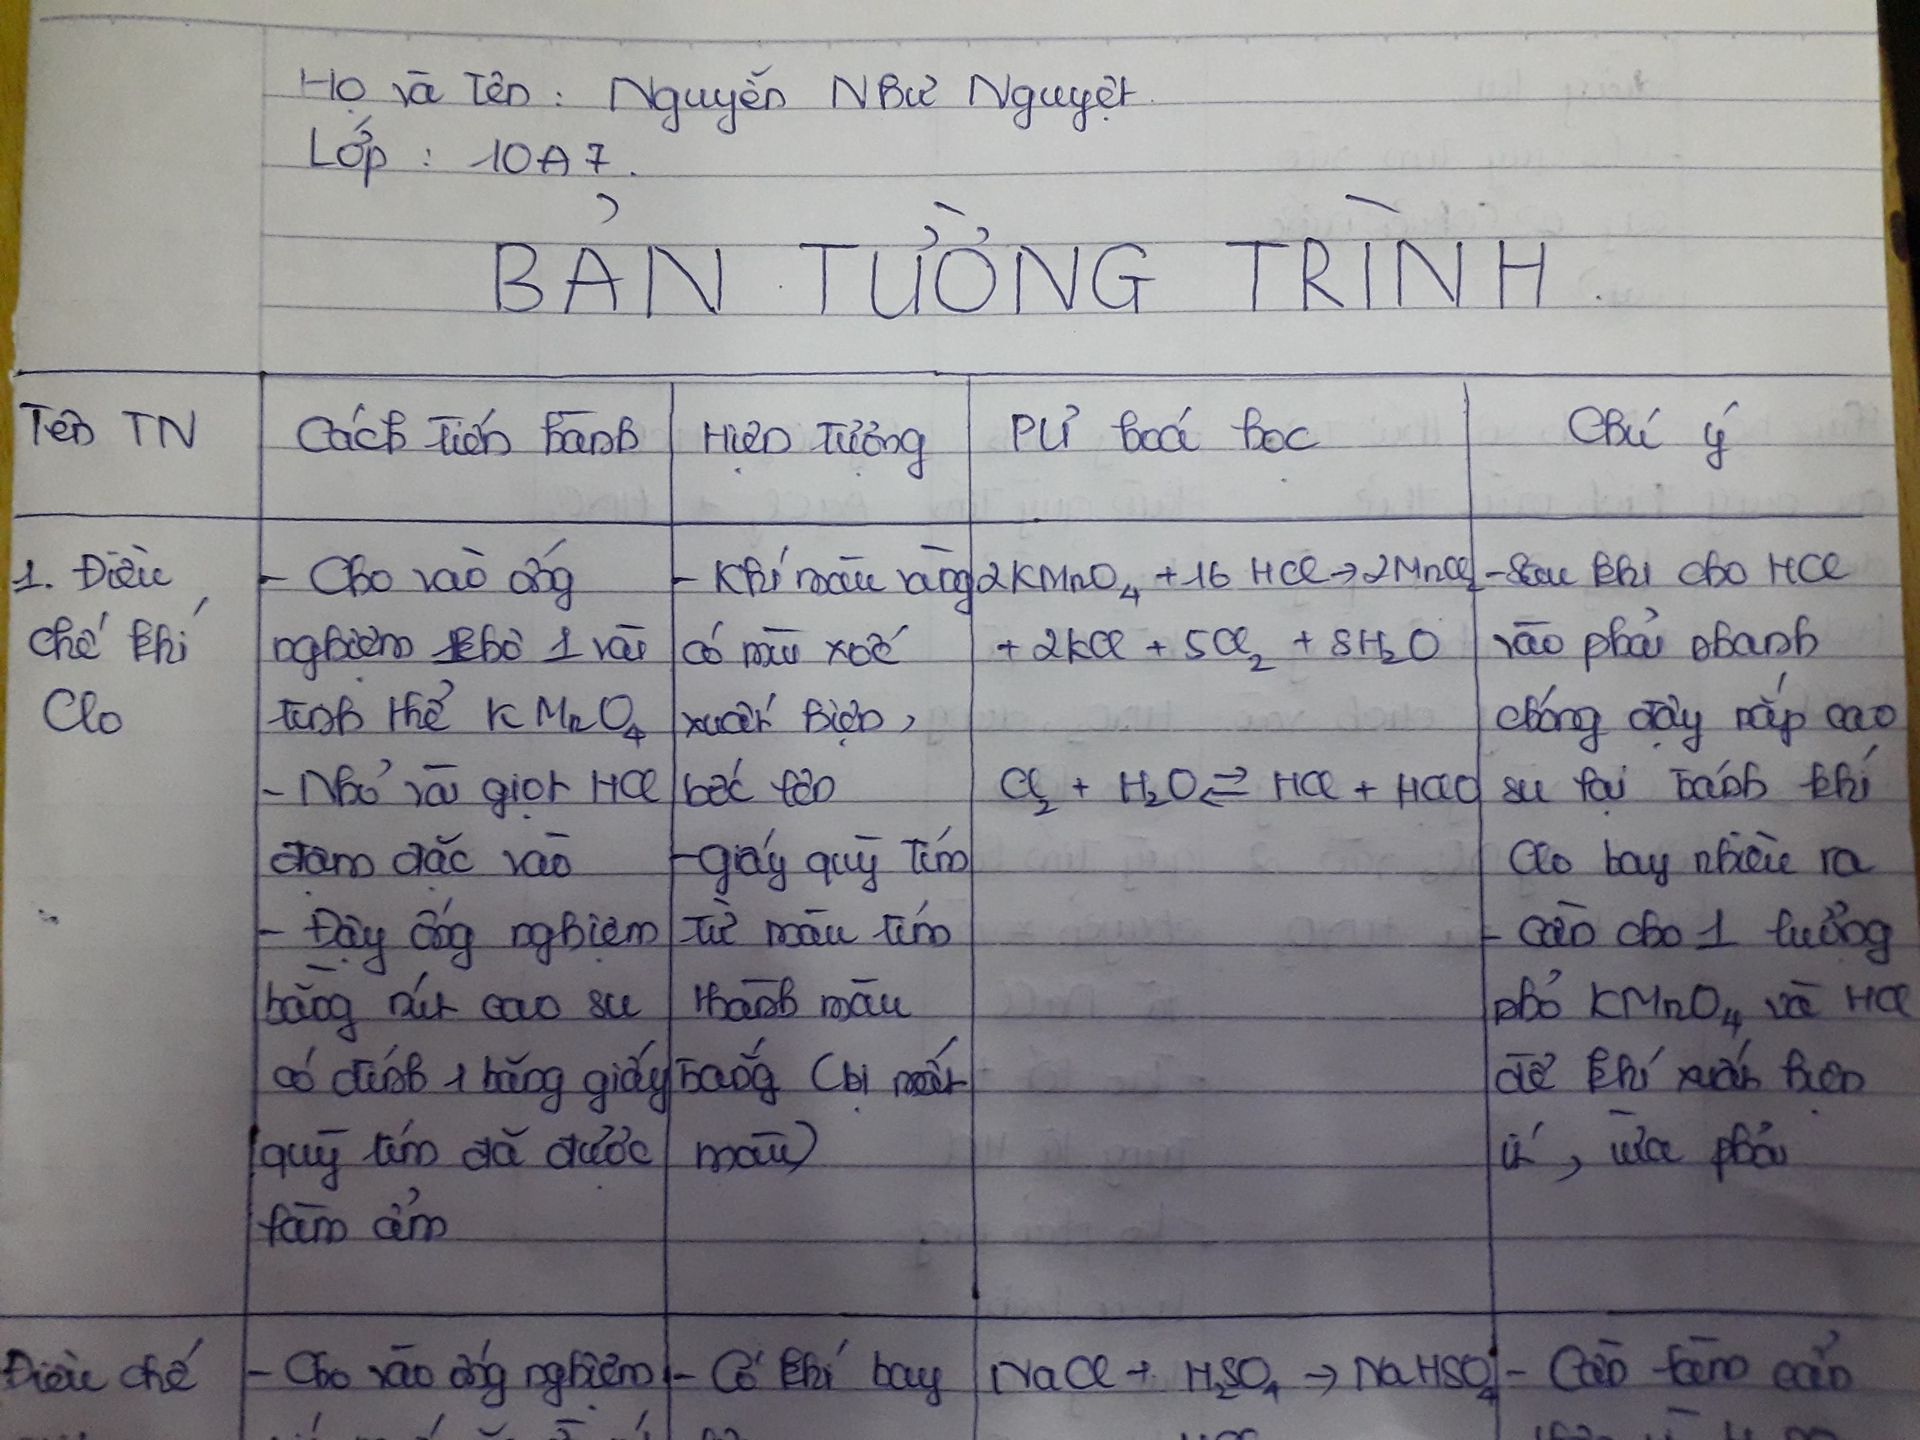 Họ và Tên : Nguyễn Như Nguyệt.
Lớp : 10A7.
BẢN TƯỜNG TRÌNH.
Tên TN
Cách tiến hành
Hiện tượng
PƯ hoá học
Chú ý
1. Điều
chế khí
Clo
- Cho vào ống
nghiệm khô 1 vài
tinh thể KMnO4
- Nhỏ vài giọt HCl
đậm đặc vào
- Đậy ống nghiệm
bằng nút cao su
có dính 1 băng giấy
quỳ tím đã được
làm ẩm
- Khí màu vàng
có mùi xốc
xuất hiện,
bốc lên
- Giấy quỳ tím
từ màu tím
thành màu
trắng (bị mất
màu)
2KMnO4 + 16 HCl → 2MnCl2
+ 2KCl + 5Cl2 + 8H2O
Cl2 + H2O ⇌ HCl + HClO
- Sau khi cho HCl
vào phải nhanh
chóng đậy nắp cao
su lại tránh khí
Clo bay nhiều ra
- Cần cho 1 lượng
nhỏ KMnO4 và HCl
để khí xuất hiện
ít, vừa phải
Điều chế
- Cho vào ống nghiệm
- Có khí bay
NaCl + H2SO4 → NaHSO4
- Cần làm cẩn